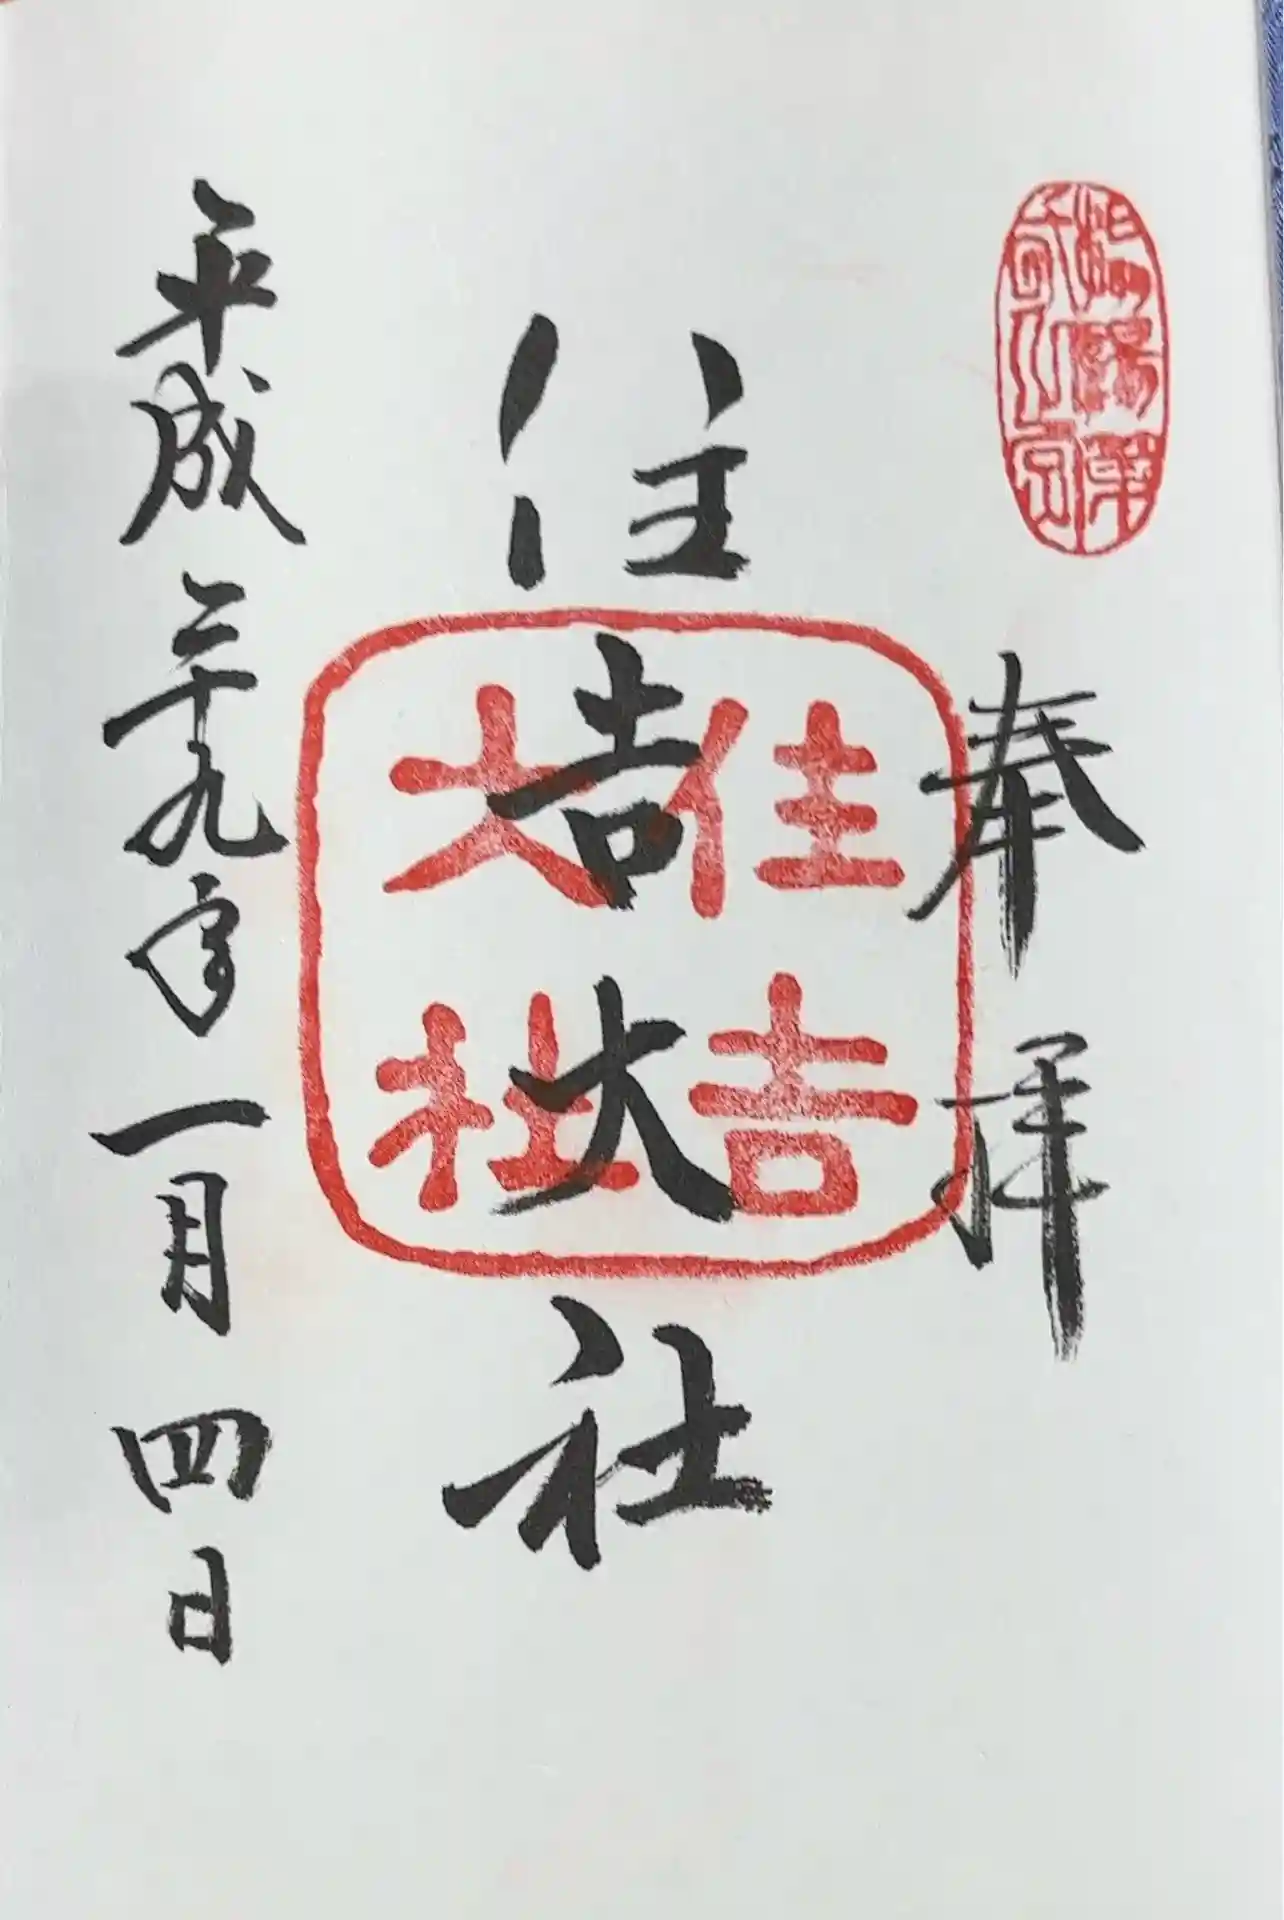 奉拝
住吉大社
住吉
大社
平成二十九年一月四日